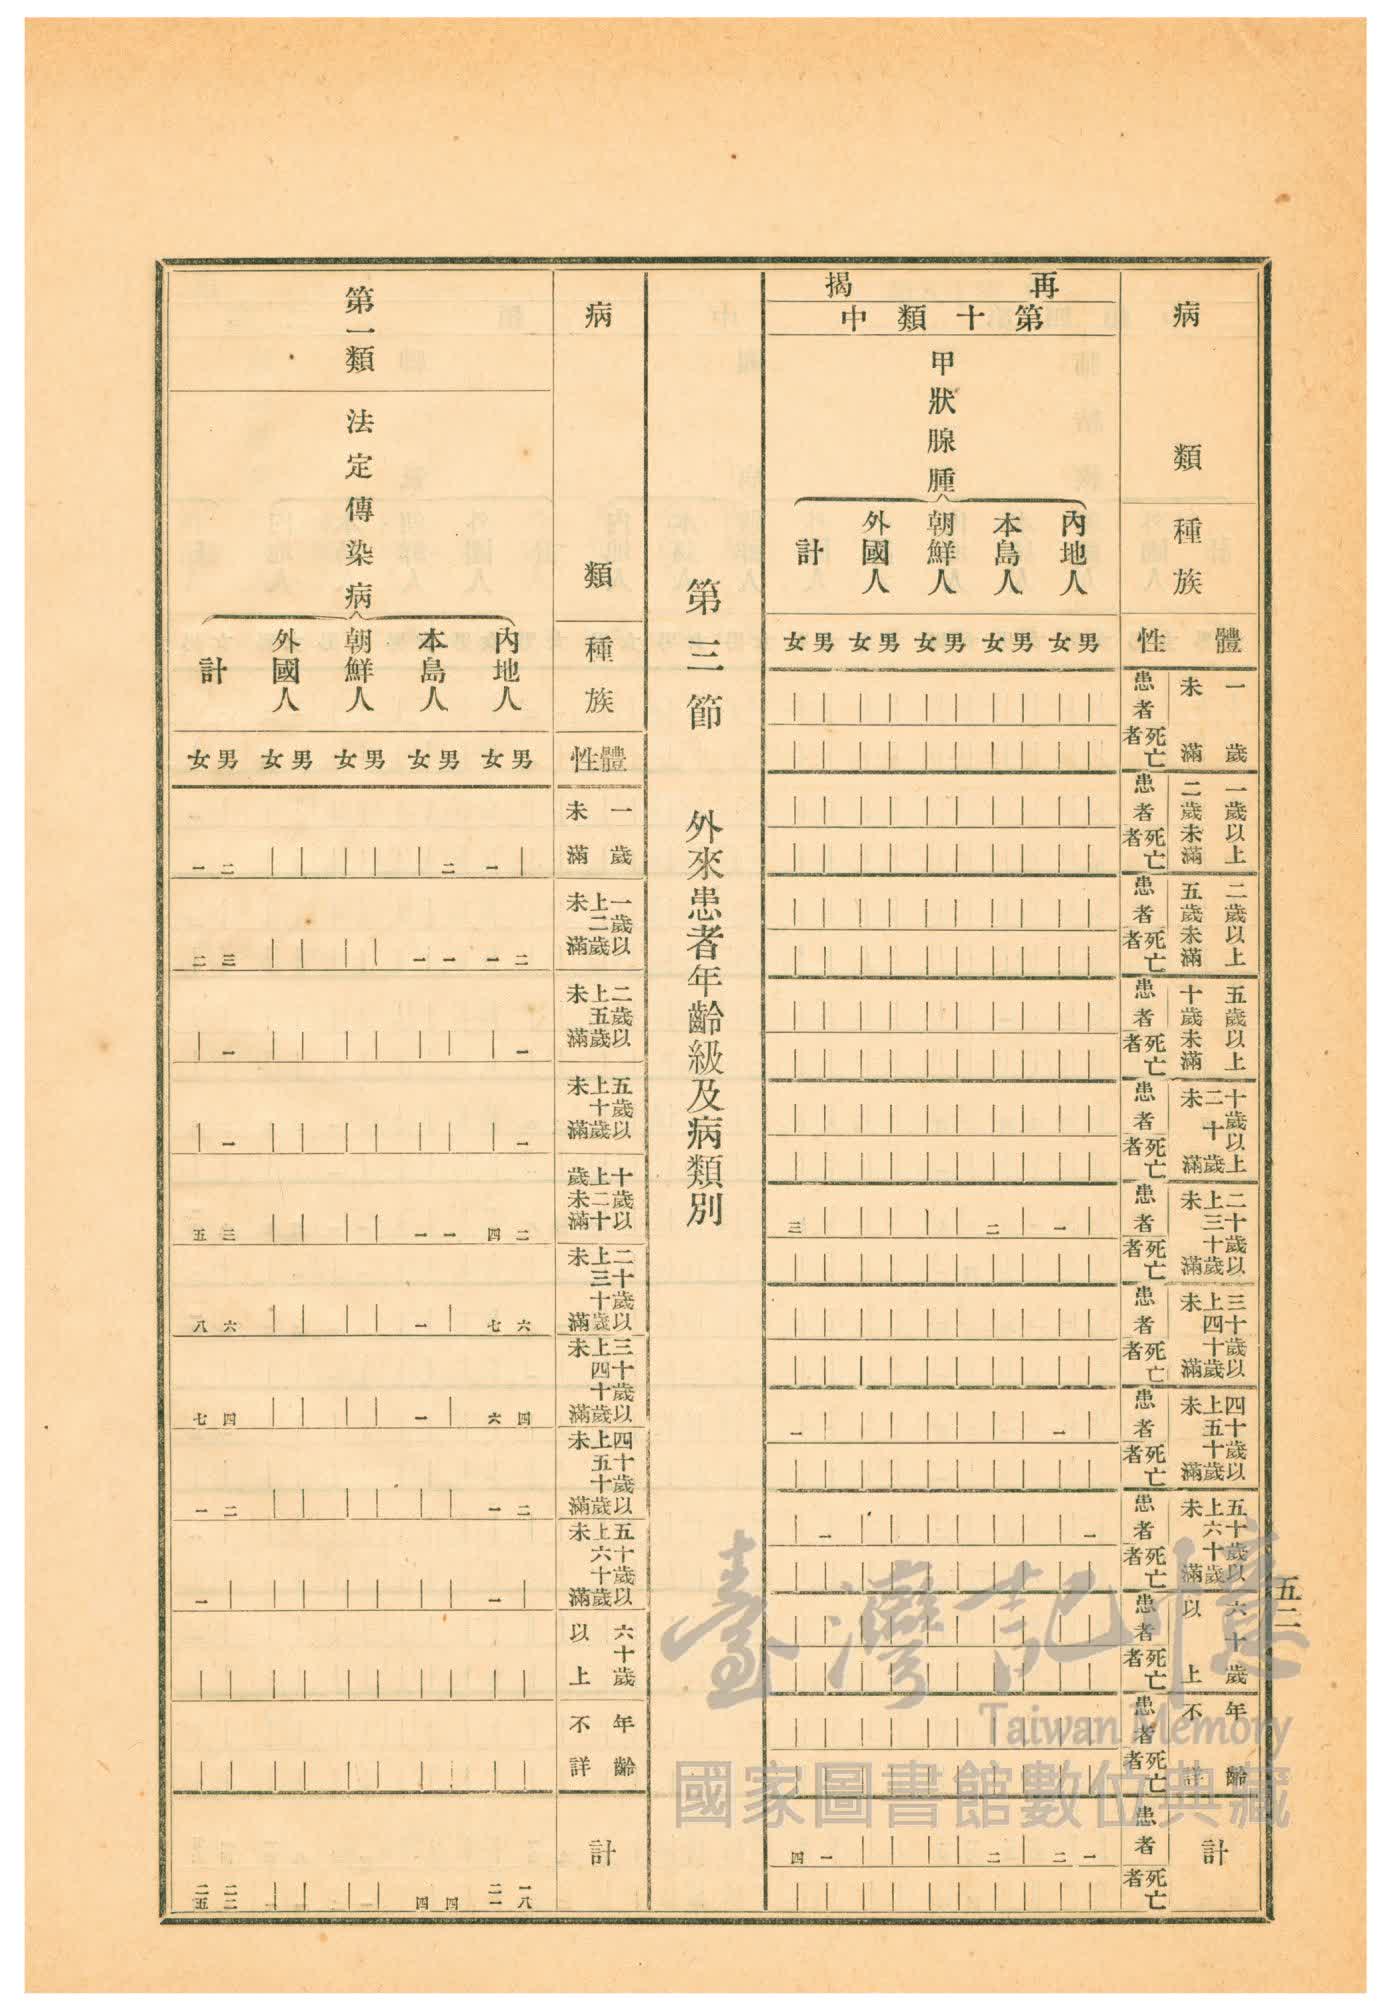 五二
病類
種族
體性
再揭
第十類中
甲狀腺腫
內地人 本島人 朝鮮人 外國人 計
男 女 男 女 男 女 男 女 男 女
一歲未滿 患者 ｜ ｜ ｜ ｜ ｜ ｜ ｜ ｜ ｜ ｜
死亡者 ｜ ｜ ｜ ｜ ｜ ｜ ｜ ｜ ｜ ｜
一歲以上二歲未滿 患者 ｜ ｜ ｜ ｜ ｜ ｜ ｜ ｜ ｜ ｜
死亡者 ｜ ｜ ｜ ｜ ｜ ｜ ｜ ｜ ｜ ｜
二歲以上五歲未滿 患者 ｜ ｜ ｜ ｜ ｜ ｜ ｜ ｜ ｜ ｜
死亡者 ｜ ｜ ｜ ｜ ｜ ｜ ｜ ｜ ｜ ｜
五歲以上十歲未滿 患者 ｜ ｜ ｜ ｜ ｜ ｜ ｜ ｜ ｜ ｜
死亡者 ｜ ｜ ｜ ｜ ｜ ｜ ｜ ｜ ｜ ｜
十歲以上二十歲未滿 患者 ｜ ｜ ｜ ｜ ｜ ｜ ｜ ｜ ｜ ｜
死亡者 ｜ ｜ ｜ ｜ ｜ ｜ ｜ ｜ ｜ ｜
二十歲以上三十歲未滿 患者 ｜ 一 ｜ 二 ｜ ｜ ｜ ｜ ｜ 三
死亡者 ｜ ｜ ｜ ｜ ｜ ｜ ｜ ｜ ｜ ｜
三十歲以上四十歲未滿 患者 ｜ ｜ ｜ ｜ ｜ ｜ ｜ ｜ ｜ ｜
死亡者 ｜ ｜ ｜ ｜ ｜ ｜ ｜ ｜ ｜ ｜
四十歲以上五十歲未滿 患者 ｜ 一 ｜ ｜ ｜ ｜ ｜ ｜ ｜ 一
死亡者 ｜ ｜ ｜ ｜ ｜ ｜ ｜ ｜ ｜ ｜
五十歲以上六十歲未滿 患者 一 ｜ ｜ ｜ ｜ ｜ ｜ ｜ 一 ｜
死亡者 ｜ ｜ ｜ ｜ ｜ ｜ ｜ ｜ ｜ ｜
六十歲以上 患者 ｜ ｜ ｜ ｜ ｜ ｜ ｜ ｜ ｜ ｜
死亡者 ｜ ｜ ｜ ｜ ｜ ｜ ｜ ｜ ｜ ｜
年齡不詳 患者 ｜ ｜ ｜ ｜ ｜ ｜ ｜ ｜ ｜ ｜
死亡者 ｜ ｜ ｜ ｜ ｜ ｜ ｜ ｜ ｜ ｜
計 患者 一 二 ｜ 二 ｜ ｜ ｜ ｜ 一 四
死亡者 ｜ ｜ ｜ ｜ ｜ ｜ ｜ ｜ ｜ ｜
第三節 外來患者年齡級及病類別
病類
種族
體性
第一類
法定傳染病
內地人 本島人 朝鮮人 外國人 計
男 女 男 女 男 女 男 女 男 女
一歲未滿 ｜ 一 二 ｜ ｜ ｜ ｜ ｜ 二 一
一歲以上二歲未滿 二 一 一 一 ｜ ｜ ｜ ｜ 三 二
二歲以上五歲未滿 一 ｜ ｜ ｜ ｜ ｜ ｜ ｜ 一 ｜
五歲以上十歲未滿 一 ｜ ｜ ｜ ｜ ｜ ｜ ｜ 一 ｜
十歲以上二十歲未滿 二 四 一 一 ｜ ｜ ｜ ｜ 三 五
二十歲以上三十歲未滿 六 七 ｜ 一 ｜ ｜ ｜ ｜ 六 八
三十歲以上四十歲未滿 四 六 ｜ 一 ｜ ｜ ｜ ｜ 四 七
四十歲以上五十歲未滿 二 一 ｜ ｜ ｜ ｜ ｜ ｜ 二 一
五十歲以上六十歲未滿 ｜ 一 ｜ ｜ ｜ ｜ ｜ ｜ ｜ 一
六十歲以上 ｜ ｜ ｜ ｜ ｜ ｜ ｜ ｜ ｜ ｜
年齡不詳 ｜ ｜ ｜ ｜ ｜ ｜ ｜ ｜ ｜ ｜
計 一八 二一 四 四 ｜ ｜ ｜ ｜ 二二 二五
臺灣記憶
Taiwan Memory
國家圖書館數位典藏